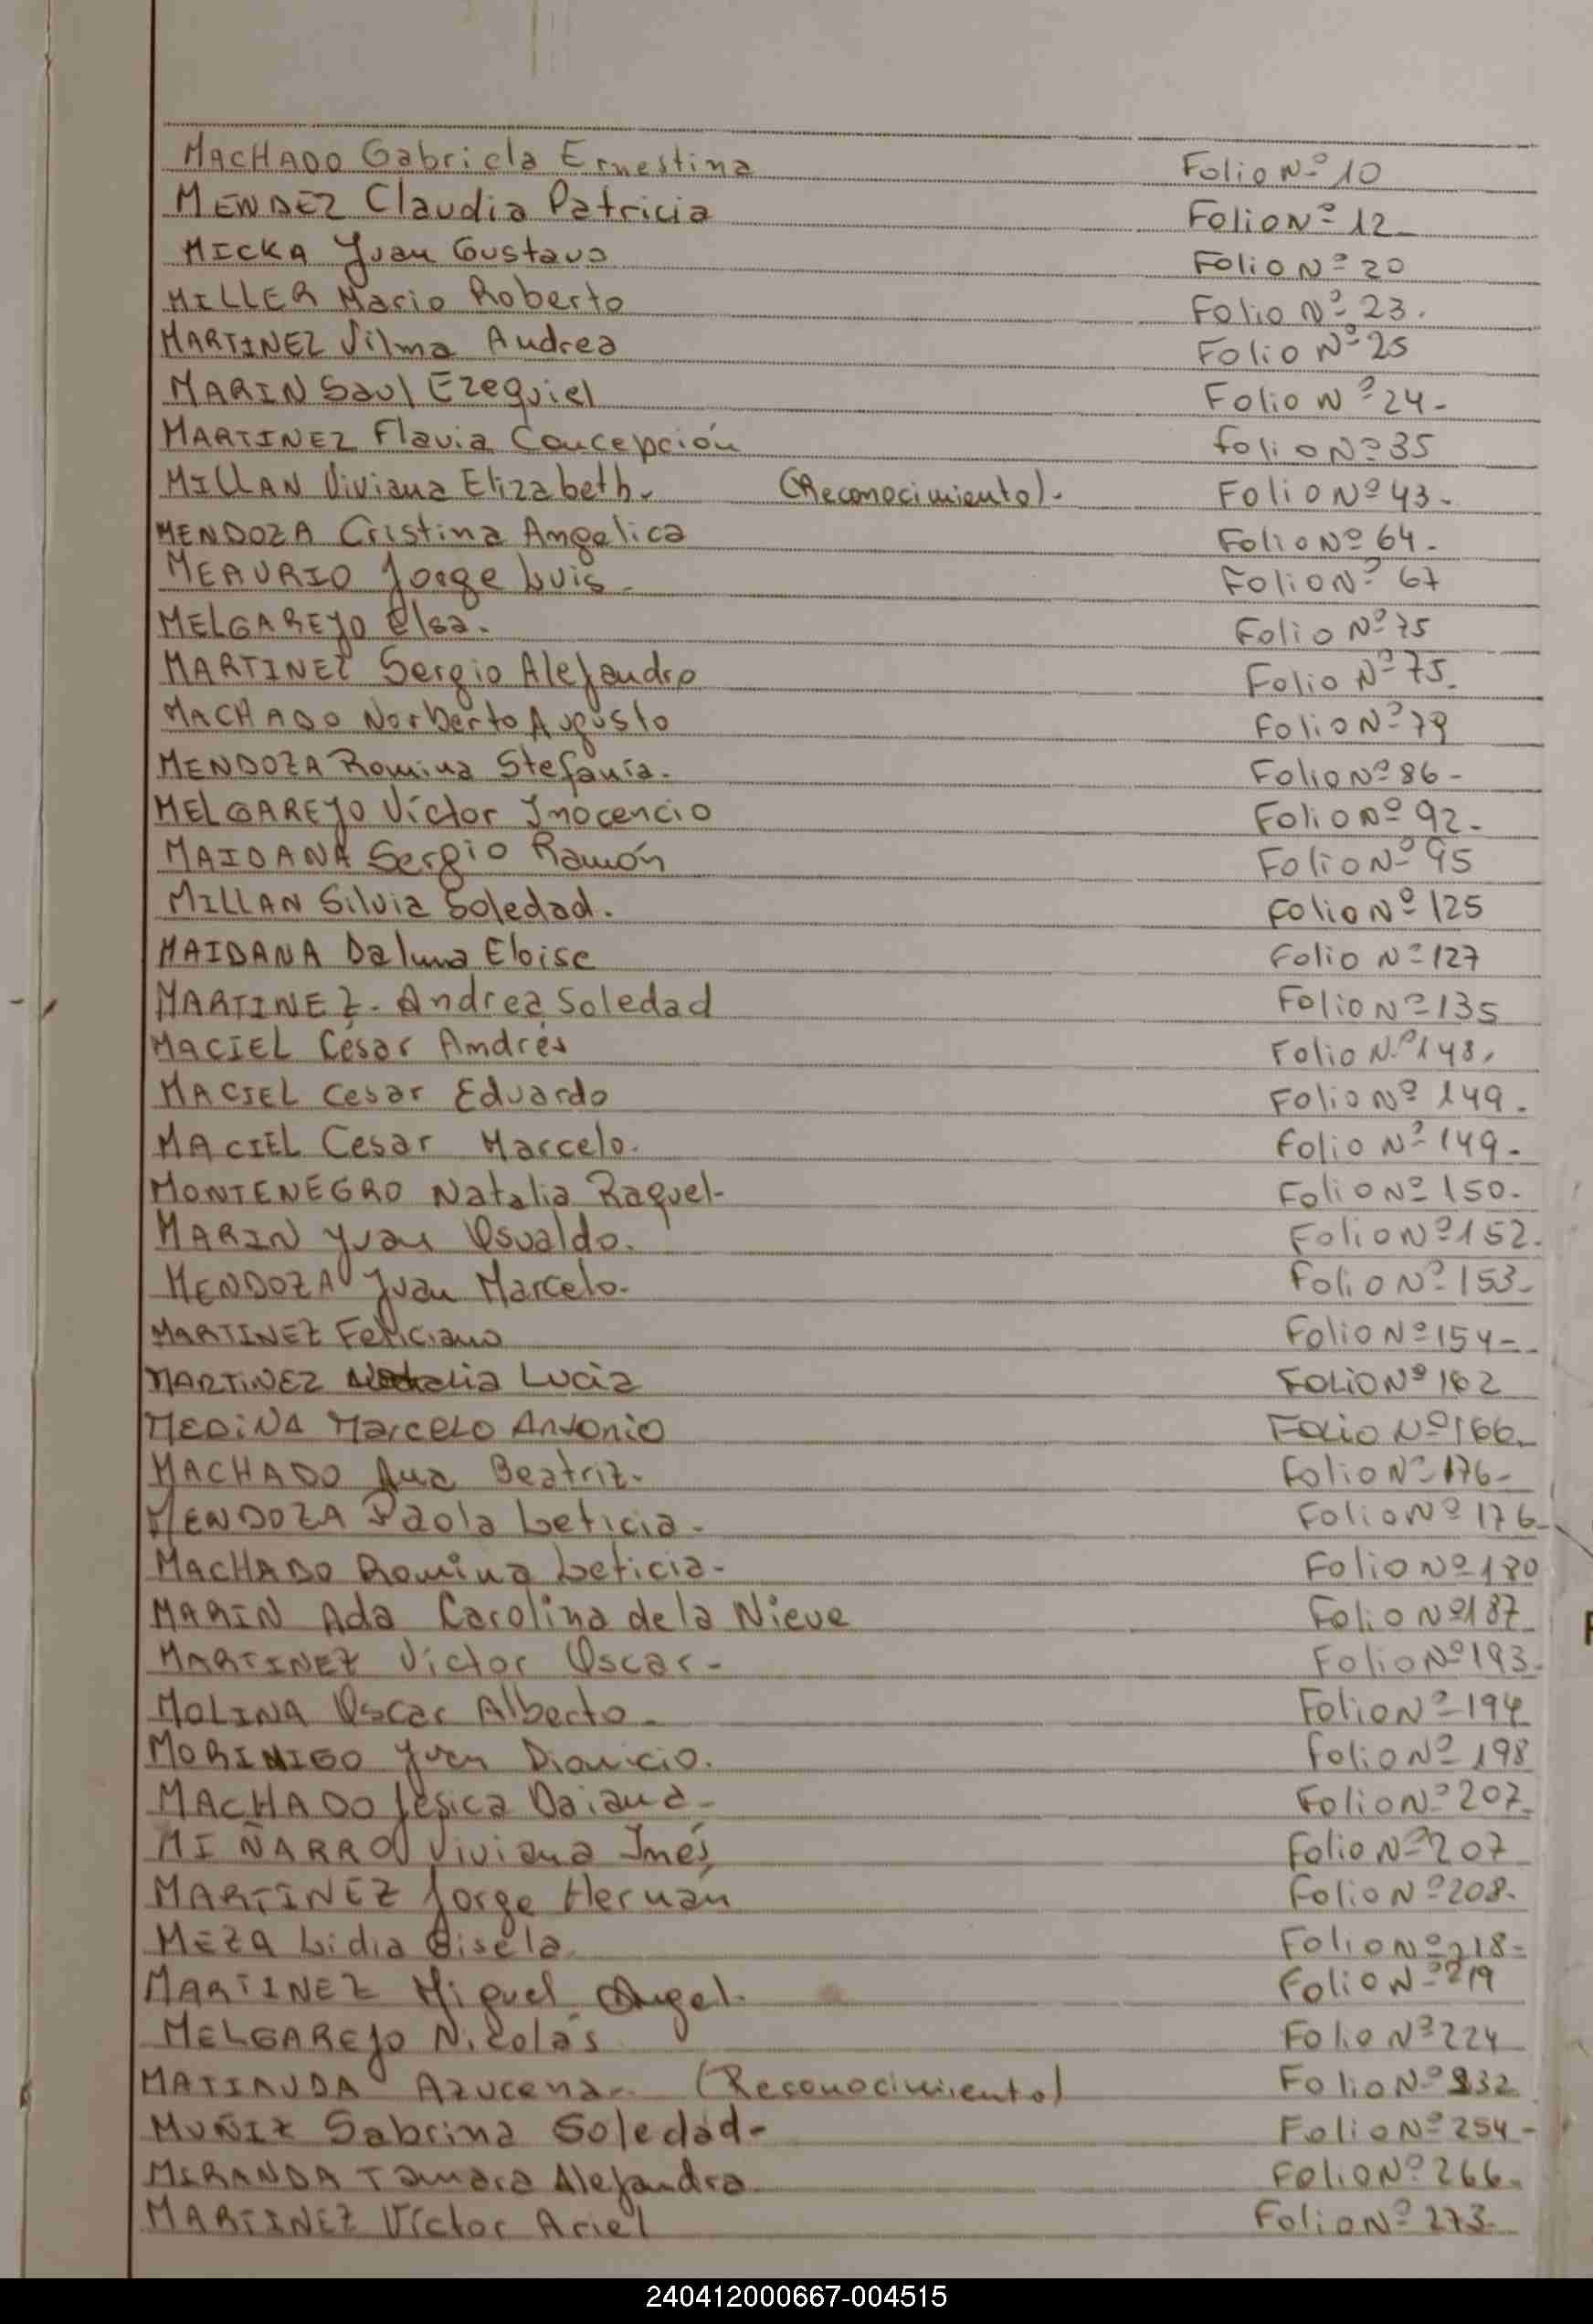 MACHADO Gabriela Ernestina Folio Nº 10
MENDEZ Claudia Patricia Folio Nº 12
MICKA Juan Gustavo Folio Nº 20
MILLER Mario Roberto Folio Nº 23.
MARTINEZ Vilma Andrea Folio Nº 25
MARIN Saul Ezequiel Folio Nº 24-
MARTINEZ Flavia Concepción Folio Nº 35
MILLAN Viviana Elizabeth. (Reconocimiento). Folio Nº 43-
MENDOZA Cristina Angelica Folio Nº 64-
MEAURIO Jorge Luis- Folio Nº 67
MELGAREJO Elsa. Folio Nº 75
MARTINEZ Sergio Alejandro Folio Nº 75-
MACHADO Norberto Augusto Folio Nº 79
MENDOZA Romina Stefanía. Folio Nº 86-
MELGAREJO Víctor Inocencio Folio Nº 92-
MAIDANA Sergio Ramón Folio Nº 95
MILLAN Silvia Soledad. Folio Nº 125
MAIDANA Daluna Eloise Folio Nº 127
MARTINEZ- Andrea Soledad Folio Nº 135
MACIEL César Andrés Folio Nº 148.
MACIEL Cesar Eduardo Folio Nº 149-
MACIEL Cesar Marcelo. Folio Nº 149-
MONTENEGRO Natalia Raquel- Folio Nº 150-
MARIN Juan Osvaldo. Folio Nº 152.
MENDOZA Juan Marcelo- Folio Nº 153-
MARTINEZ Feliciano Folio Nº 154-
MARTINEZ Natalia Lucia FOLIO Nº 162
MEDINA Marcelo Antonio Folio Nº 166-
MACHADO Ana Beatriz- Folio Nº 176-
MENDOZA Paola Leticia- Folio Nº 176-
MACHADO Romina Leticia- Folio Nº 180
MARIN Ada Carolina de la Nieve Folio Nº 187
MARTINEZ Victor Oscar- Folio Nº 193-
MOLINA Oscar Alberto- Folio Nº 194
MORINIGO Juan Dionicio. Folio Nº 198
MACHADO Jésica Daiana- Folio Nº 207-
MIÑARRO Viviana Inés Folio Nº 207
MARTINEZ Jorge Hernán Folio Nº 208-
MEZA Lidia Gisela Folio Nº 218-
MARTINEZ Miguel Angel- Folio Nº 219
MELGAREJO Nicolás Folio Nº 224
MATIAUDA Azucena- (Reconocimiento) Folio Nº 232
MUÑIZ Sabrina Soledad- Folio Nº 254-
MIRANDA Tamara Alejandra Folio Nº 266-
MARTINEZ Víctor Ariel Folio Nº 273-
240412000667-004515